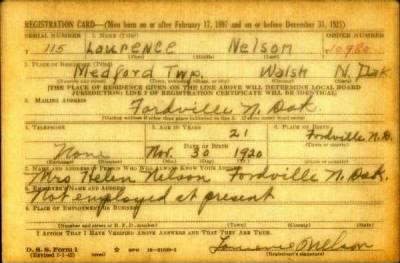 REGISTRATION CARD—(Men born on or after February 17, 1897 and on or before December 31, 1921)
SERIAL NUMBER 1. NAME (Print) ORDER NUMBER
115 Lawrence Nelson 10980
(First) (Middle) (Last)
2. PLACE OF RESIDENCE (Print)
Medford Twp. Walsh N. Dak
(Number and street) (Town, township, village, or city) (County) (State)
[THE PLACE OF RESIDENCE GIVEN ON THE LINE ABOVE WILL DETERMINE LOCAL BOARD
JURISDICTION; LINE 2 OF REGISTRATION CERTIFICATE WILL BE IDENTICAL]
3. MAILING ADDRESS
Fordville N. Dak.
[Mailing address if other than place indicated on line 2. If same insert word same]
4. TELEPHONE 5. AGE IN YEARS 6. PLACE OF BIRTH
21 Fordville N.D.
DATE OF BIRTH
None Nov. 30 1920
(Exchange) (Number) (Mo.) (Day) (Yr.)
7. NAME AND ADDRESS OF PERSON WHO WILL ALWAYS KNOW YOUR ADDRESS
Mrs Helen Nelson Fordville N. Dak.
8. EMPLOYER'S NAME AND ADDRESS
Not employed at present
9. PLACE OF EMPLOYMENT OR BUSINESS
(Number and street or R. F. D. number) (Town) (County) (State)
I AFFIRM THAT I HAVE VERIFIED ABOVE ANSWERS AND THAT THEY ARE TRUE.
D. S. S. Form 1
(Revised 1-1-42) GPO 16-21630-1
Lawrence Nelson
(Registrant's signature)